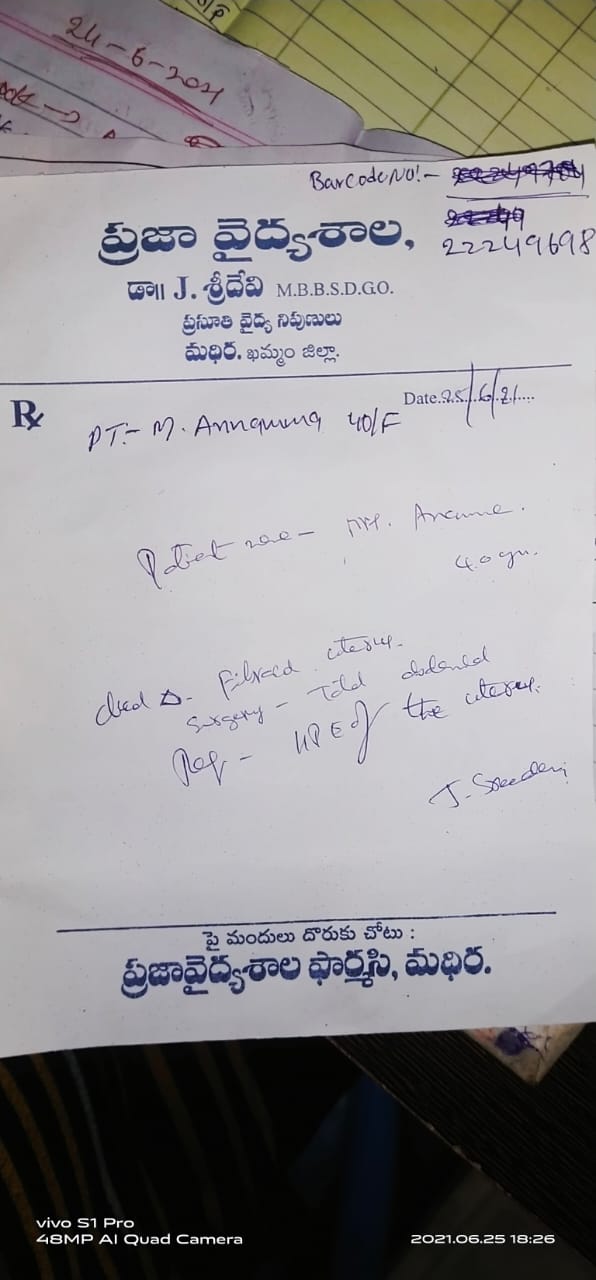 24-6-2021
BarCode No!-
22249698
ప్రజా వైద్యశాల,
డా॥ J. శ్రీదేవి M.B.B.S.D.G.O.
ప్రసూతి వైద్య నిపుణులు
మధిర. ఖమ్మం జిల్లా.
Rx
Date.25/6/21....
PT:- M. 40/F
Patient
40
Fibroid uterus.
surgery - Total
HPE of the uterus.
J. Sreedevi
పై మందులు దొరుకు చోటు :
ప్రజావైద్యశాల ఫార్మసి, మధిర.
vivo S1 Pro
48MP AI Quad Camera
2021.06.25 18:26